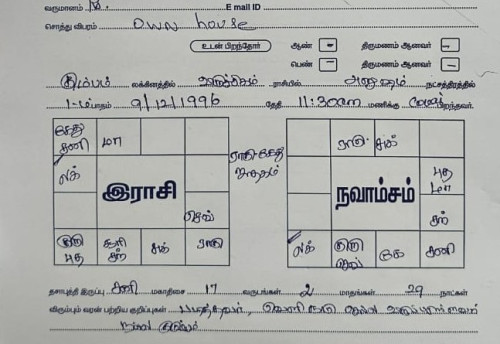 வருமானம் E mail ID
சொத்து விபரம் own house
உடன் பிறந்தோர் ஆண் - திருமணம் ஆனவர் -
பெண் - திருமணம் ஆனவர் -
கும்பம் லக்கினத்தில் விருச்சிகம் ராசியில் அனுஷம் நட்சத்திரத்தில்
1-ம் பாதம் 9/12/1996 தேதி 11:30am மணிக்கு பிறந்தவர்.
கேது சனி மா
லக்
இராசி
செவ்
குரு புத சூரி சந் சுக் ராகு
ராகு கேது
ராகு சுக்
புத மா
நவாம்சம்
சந்
லக் குரு செவ் கே சனி
தசாபுத்தி இருப்பு சனி மகாதிசை 17 வருடங்கள் 2 மாதங்கள் 29 நாட்கள்
விரும்பும் வரன் பற்றிய குறிப்புகள்
நல்ல குடும்பம்